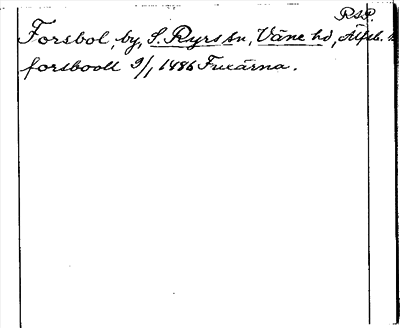 RSP.
Forsbol, by, S. Ryrs sn, Väne hd, Älfsb.
forsbooll 9/1 1486 Fuxärna.